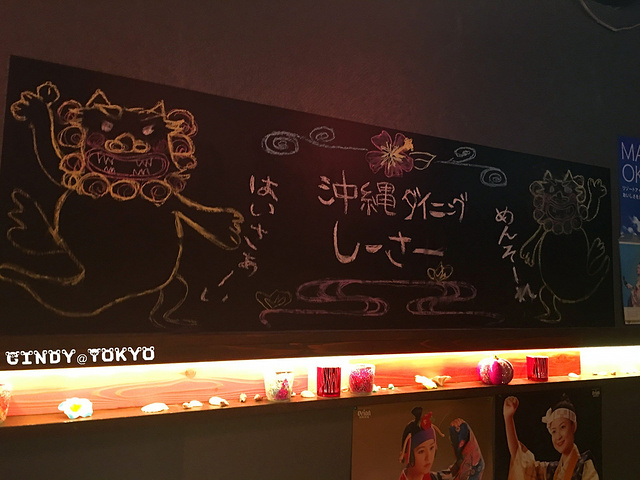 沖縄ダイニング
しーさー
はいさぁーい
めんそーれ
MA
OK
CINDY@TOKYO